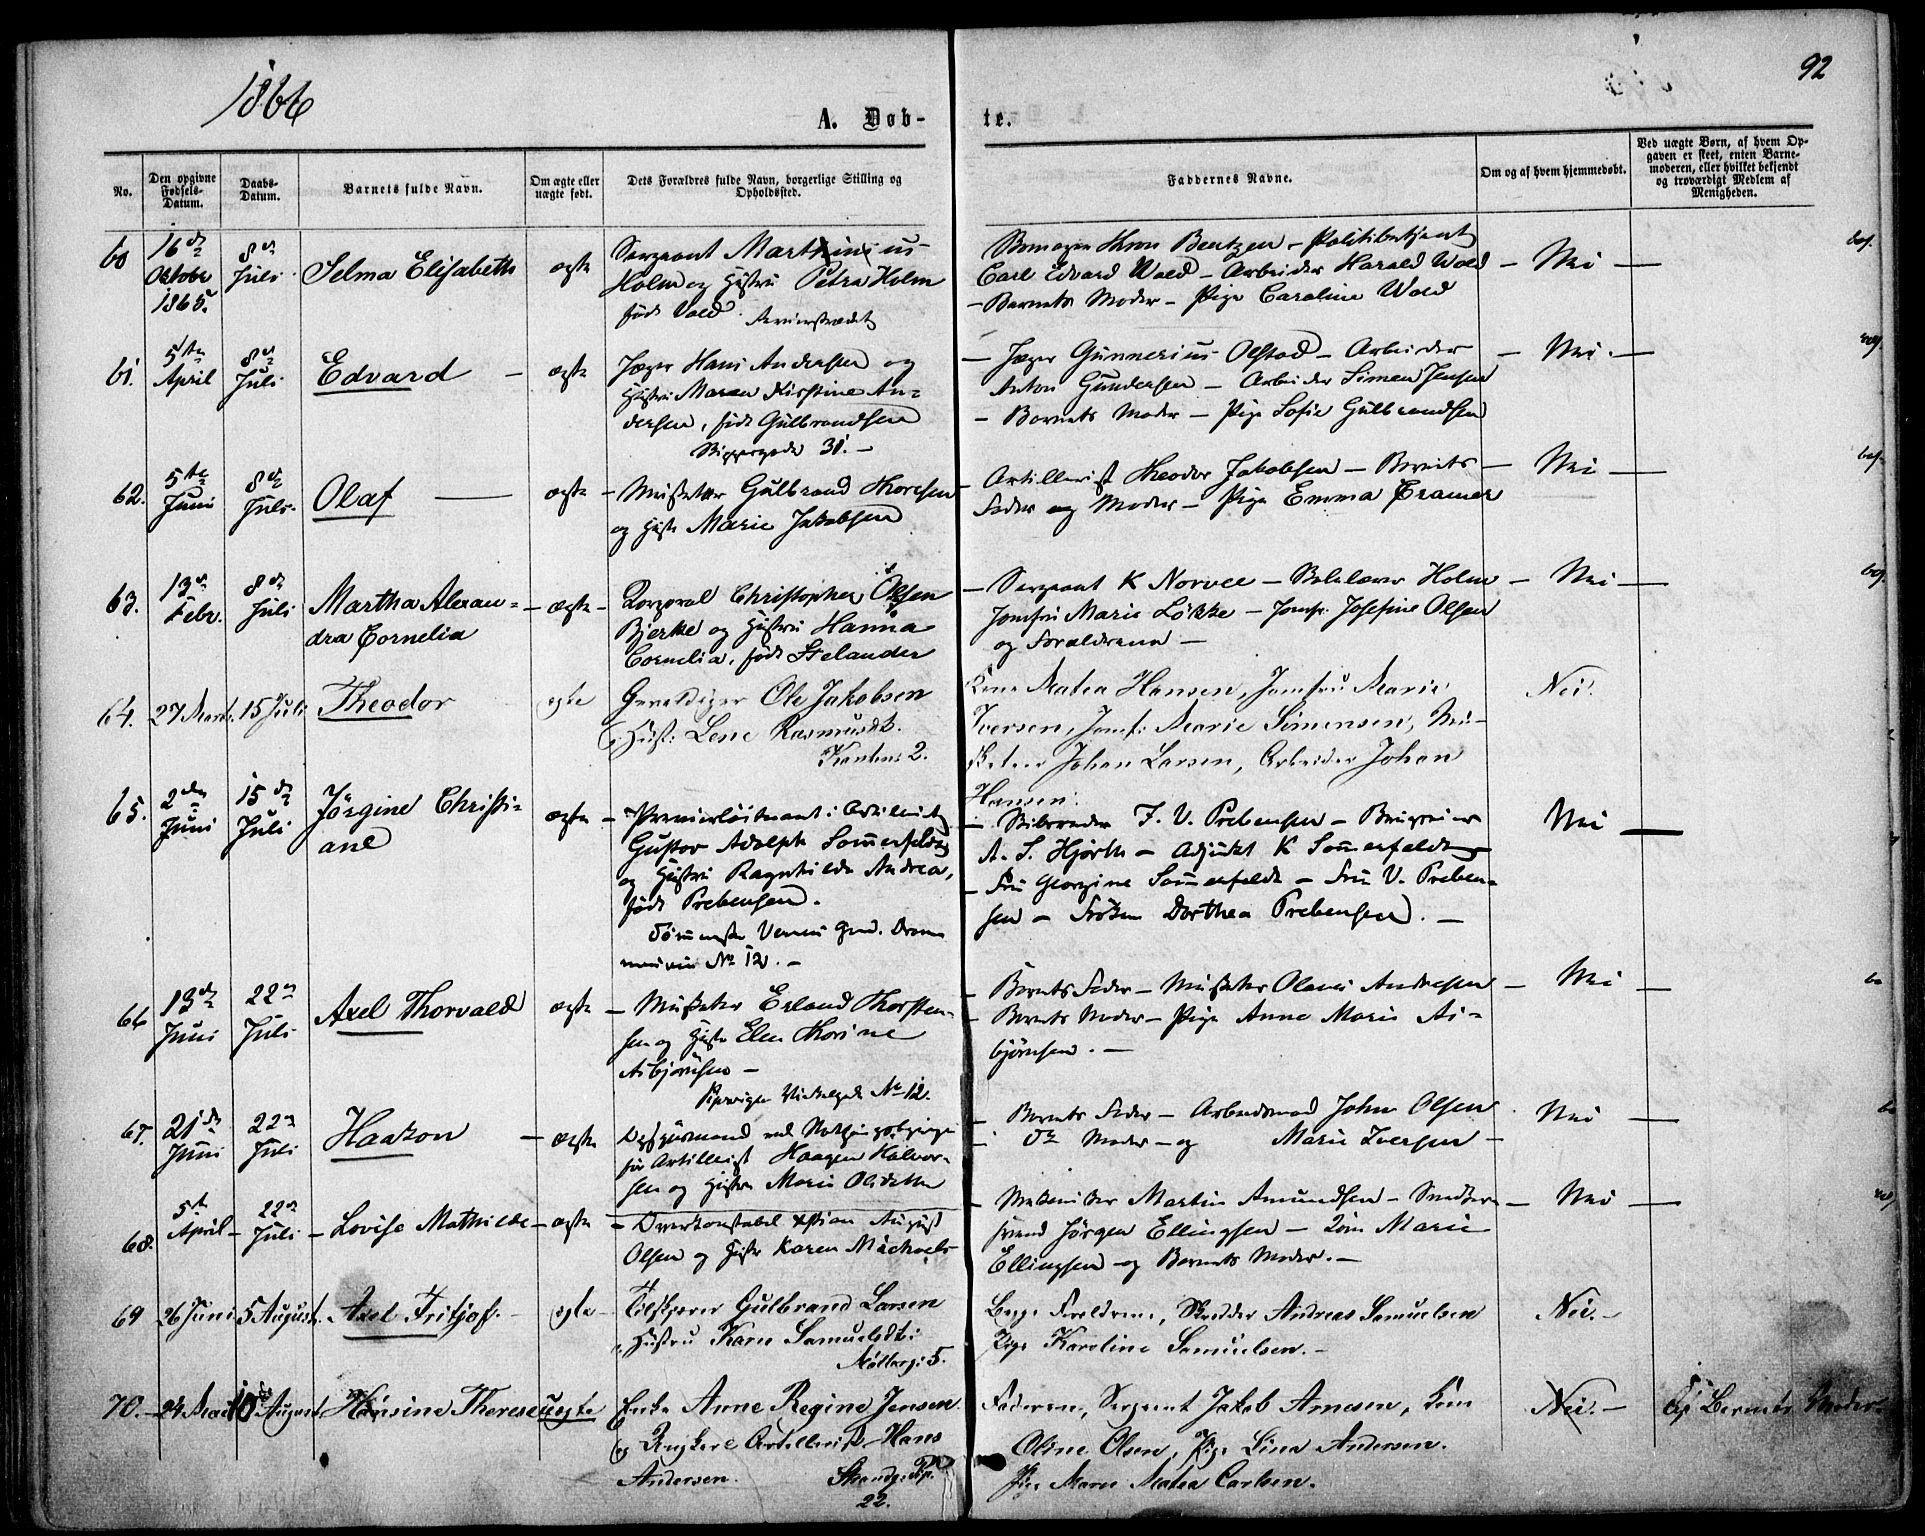 1866
92
A. Døb-
te.
No.
Den opgivne Fødsels-Datum.
Daabs-Datum.
Barnets fulde Navn.
Om ægte eller uægte født.
Dets Forældres fulde Navn, borgerlige Stilling og Opholdssted.
Faddernes Navne.
Om og af hvem hjemmedøbt.
Ved uægte Børn, af hvem Opgaven er skeet, enten Barnemoderen, eller hvilket bekjendt og troværdigt Medlem af Menigheden.
60
16de Oktobr 1865.
8de Juli
Selma Elisabeth
ægte
Sergeant Martinius
Holm og Hustru Petra Holm
født Vold.
Bentzen – Politibetjent
Carl Edvard Wold – Arbeider Harald Wold
– Barnets Moder – Pige Caroline Wold
Nei
61.
5te April
8de Juli
Edvard
ægte
Jæger Hans Andersen og
Hustru Maren Kirstine An-
dersen, født Gulbrandsen
31. –
– Jæger Gunnerius Olstad – Arbeider
Anton Gundersen – Arbeider Simen Jensen
– Barnets Moder – Pige Sofie Gulbrandsen
Nei. –
62.
5te Juni
8de Juli
Olaf
ægte
– Musketer Gulbrand Thoresen
og Hustr Marie Jakobsen
Artillerist Theodor Jakobsen – Barnets
Fader og Moder – Pige Emma Cramer
Nei –
63.
13de Febr.
8de Juli
Martha Alexan-
dra Cornelia
ægte
Korporal Christopher Olsen
Bjerke og Hustru Hanna
Cornelia, født Stelander
– Sergeant K Norvee – Holm
Jomfru Marie Løkke – Jomfr. Josefine Olsen
og Forældrene –
Nei –
64.
27 Marts
15 Juli
Theodor
ægte
Gevaldiger Ole Jakobsen
og Hust: Lene Rasmusdt.
2.
Kone Matea Hansen, Jomfru Marie
Iversen, Jomf: Marie Simensen, Mu-
sketeer Johan Larsen, Arbeider Johan
Hansen.
Nei.
65.
2den Juni
15de Juli
Jørgine Christi-
ane
ægte
– Premierløitnant i Artilleriet
Gustav Adolph Sommerfeldt
og Hustru Ragnhilda Andrea,
født Prebensen.
No 12. –
– F. V. Prebensen –
A. S. Hjorth – Adjunkt K Sommerfeldt
– Fru Georgine Sommerfeldt – Fru V. Preben-
sen – Frøken Dorthea Prebensen. –
Nei
66
13de Juni
22de Juli
Axel Thorvald
ægte
– Musketer Erland Thorsten-
sen og Hustr Elen Thorine
Asbjørnsen –
Pipervigen No 12.
– Barnets Fader – Musketer Olaves Andresen
– Barnets Moder – Pige Anne Marie As-
bjørnsen. –
Nei
67.
21de Juni
22de Juli
Haakon
ægte
Opsynsmand ved
for Artillerist Haagen Halvor-
sen og Hustru Marie
– Barnets Fader – Arbeidsmand John Olsen
– Do Moder – og Marie Iversen –
Nei
68.
5te April
22de Juli
Lovise Mathilde
ægte
– Overkonstabel Kristian August
Olsen og Hustr Karen Michaels-
– Martin Amundsen –
svend Jørgen Ellingsen – Kone Marie
Ellingsen og Barnets Moder. –
Nei
69
26 Juni
5 August.
Axel Fritjof. –
ægte
Tilskjærer Gulbrand Larsen
og Hustru Karen Samuelsdt:
Møllerg: 5.
Begge Forældrene, Skrædder Andreas Samuelsen
Pige Karoline Samuelsen. –
Nei. –
70.
24 Mai
10 August
Hansine Therese
uægte
Enke Anne Regine Jensen
og Ungkarl Artillerist Hans
Andersen. Strandg.
22.
Faderen, Sergeant Jakob Arnesen, Kone
Oline Olsen, Pige Lina Andersen.
Pige Maren Matea Carlsen.
Nei. –
Af Barnets Moder.